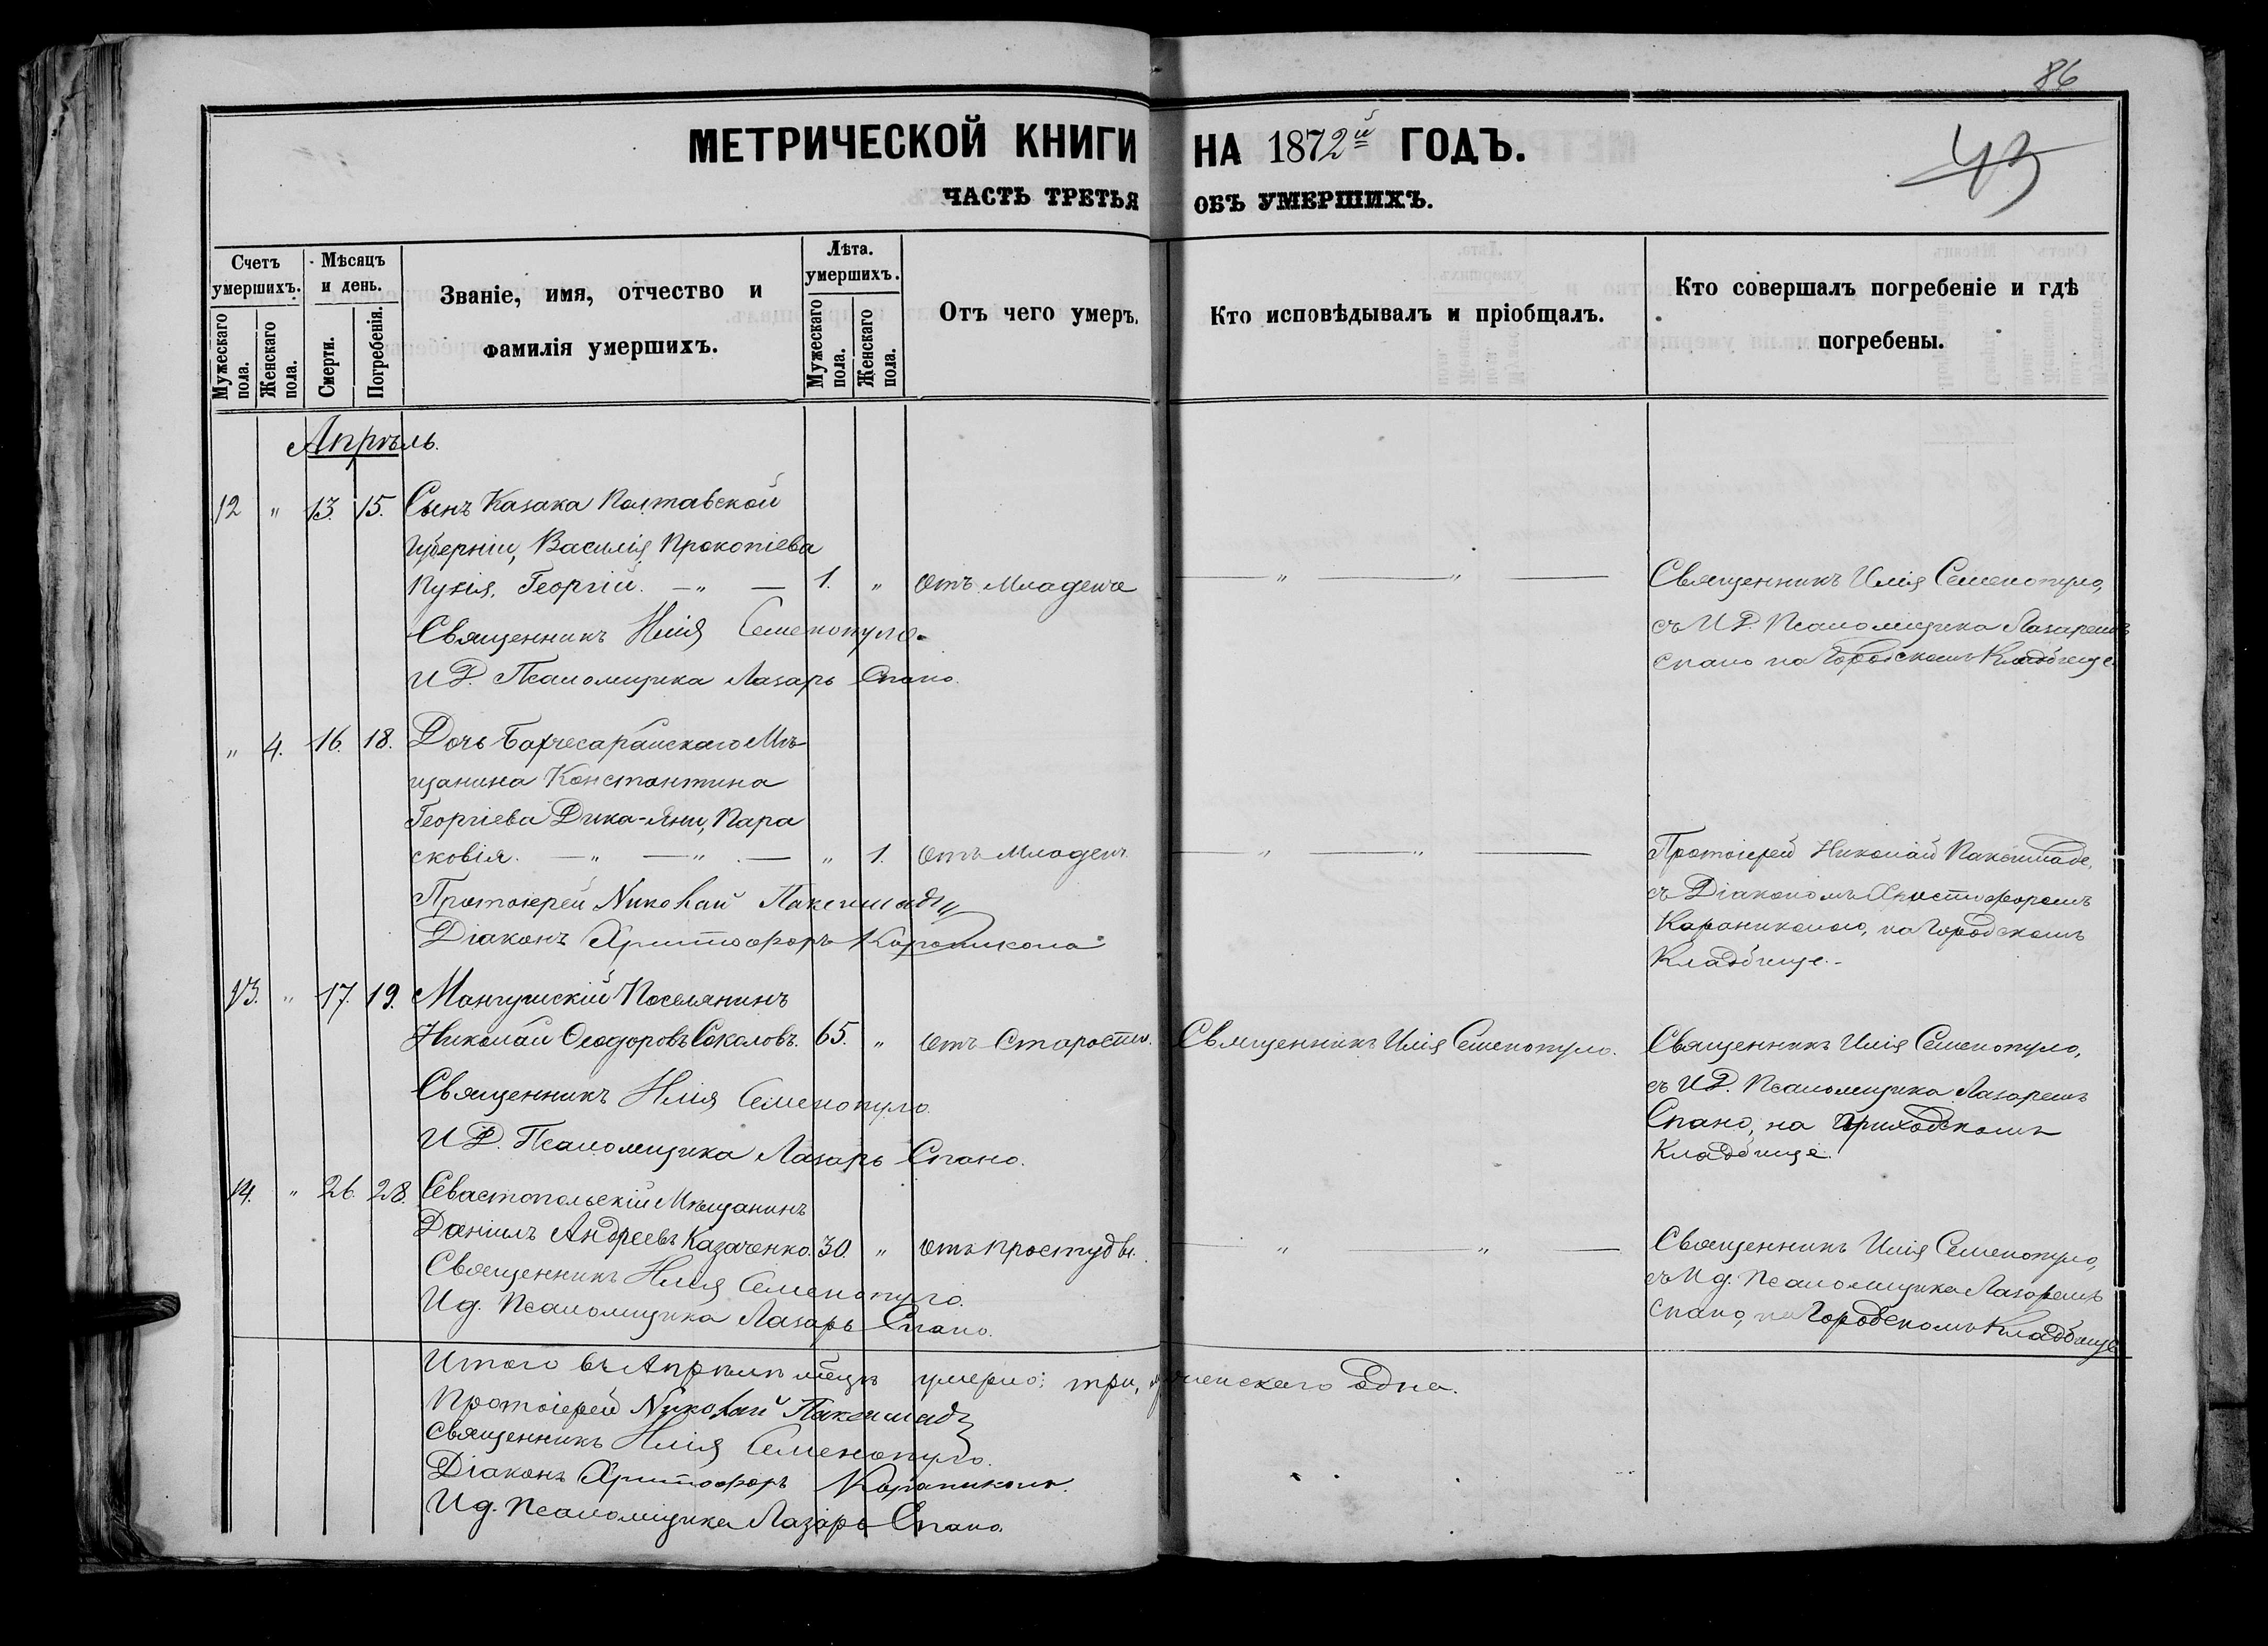 86
МЕТРИЧЕСКОЙ КНИГИ НА 1872й ГОДЪ.
43
ЧАСТЬ ТРЕТЬЯ ОБЪ УМЕРШИХЪ.
Счетъ умершихъ.
Мужескаго пола.
Женскаго пола.
Мѣсяцъ и день.
Смерти.
Погребенія.
Званіе, имя, отчество и
фамилія умершихъ.
Лѣта.
умершихъ.
Мужескаго пола.
Женскаго пола.
Отъ чего умеръ.
Кто исповѣдывалъ и пріобщалъ.
Кто совершалъ погребеніе и гдѣ
погребены.
Апрѣль.
12 " 13. 15. Сынъ Казака Полтавской
Губерніи, Василія Прокопіева
Георгій. — " — 1. " отъ Младенче — " — " —
Священникъ Илія Семенопуло.
И Д. Псаломщика Лазарь Спано.
Священникъ Илія Семенопуло,
съ И Д. Псаломщика Лазаремъ
Спано на Городскомъ Кладбище.
" 4. 16. 18. Дочь Бахчесарайскаго Мѣ-
щанина Константина
Георгіева Дика-Яни, Пара
сковія. — " — " — " 1. отъ Младенч. — " — " —
Протоіерей Николай Паксимади
Діаконъ Христофоръ Караникола
Протоіерей Николай Паксимаде,
съ Діакономъ Христофоромъ
Караниколою, на Городскомъ
Кладбище.-
13. " 17. 19. Мангушскій Поселянинъ
Николай Ѳеодоровъ Соколовъ. 65. " отъ Старости. Священникъ Илія Семенопуло.
Священникъ Илія Семенопуло.
И Д. Псаломщика Лазарь Спано.
Священникъ Илія Семенопуло,
съ И Д. Псаломщика Лазаремъ
Спано, на Приходскомъ
Кладбище.
14. " 26. 28. Севастопольскій Мѣщанинъ
Даніилъ Андреевъ Казаченко. 30. " отъ простуды. — " — " —
Священникъ Илія Семенопуло.
Ид. Псаломщика Лазарь Спано.
Священникъ Илія Семенопуло,
съ Ид. Псаломщика Лазаремъ
Спано, на Городскомъ Кладбище
Итого въ Апрѣлѣ мѣсцѣ умерло: три, женскаго Одна.
Протоіерей Николай Паксимади
Священникъ Илія Семенопуло.
Діаконъ Христофоръ Караникола.
Ид. Псаломщика Лазарь Спано.